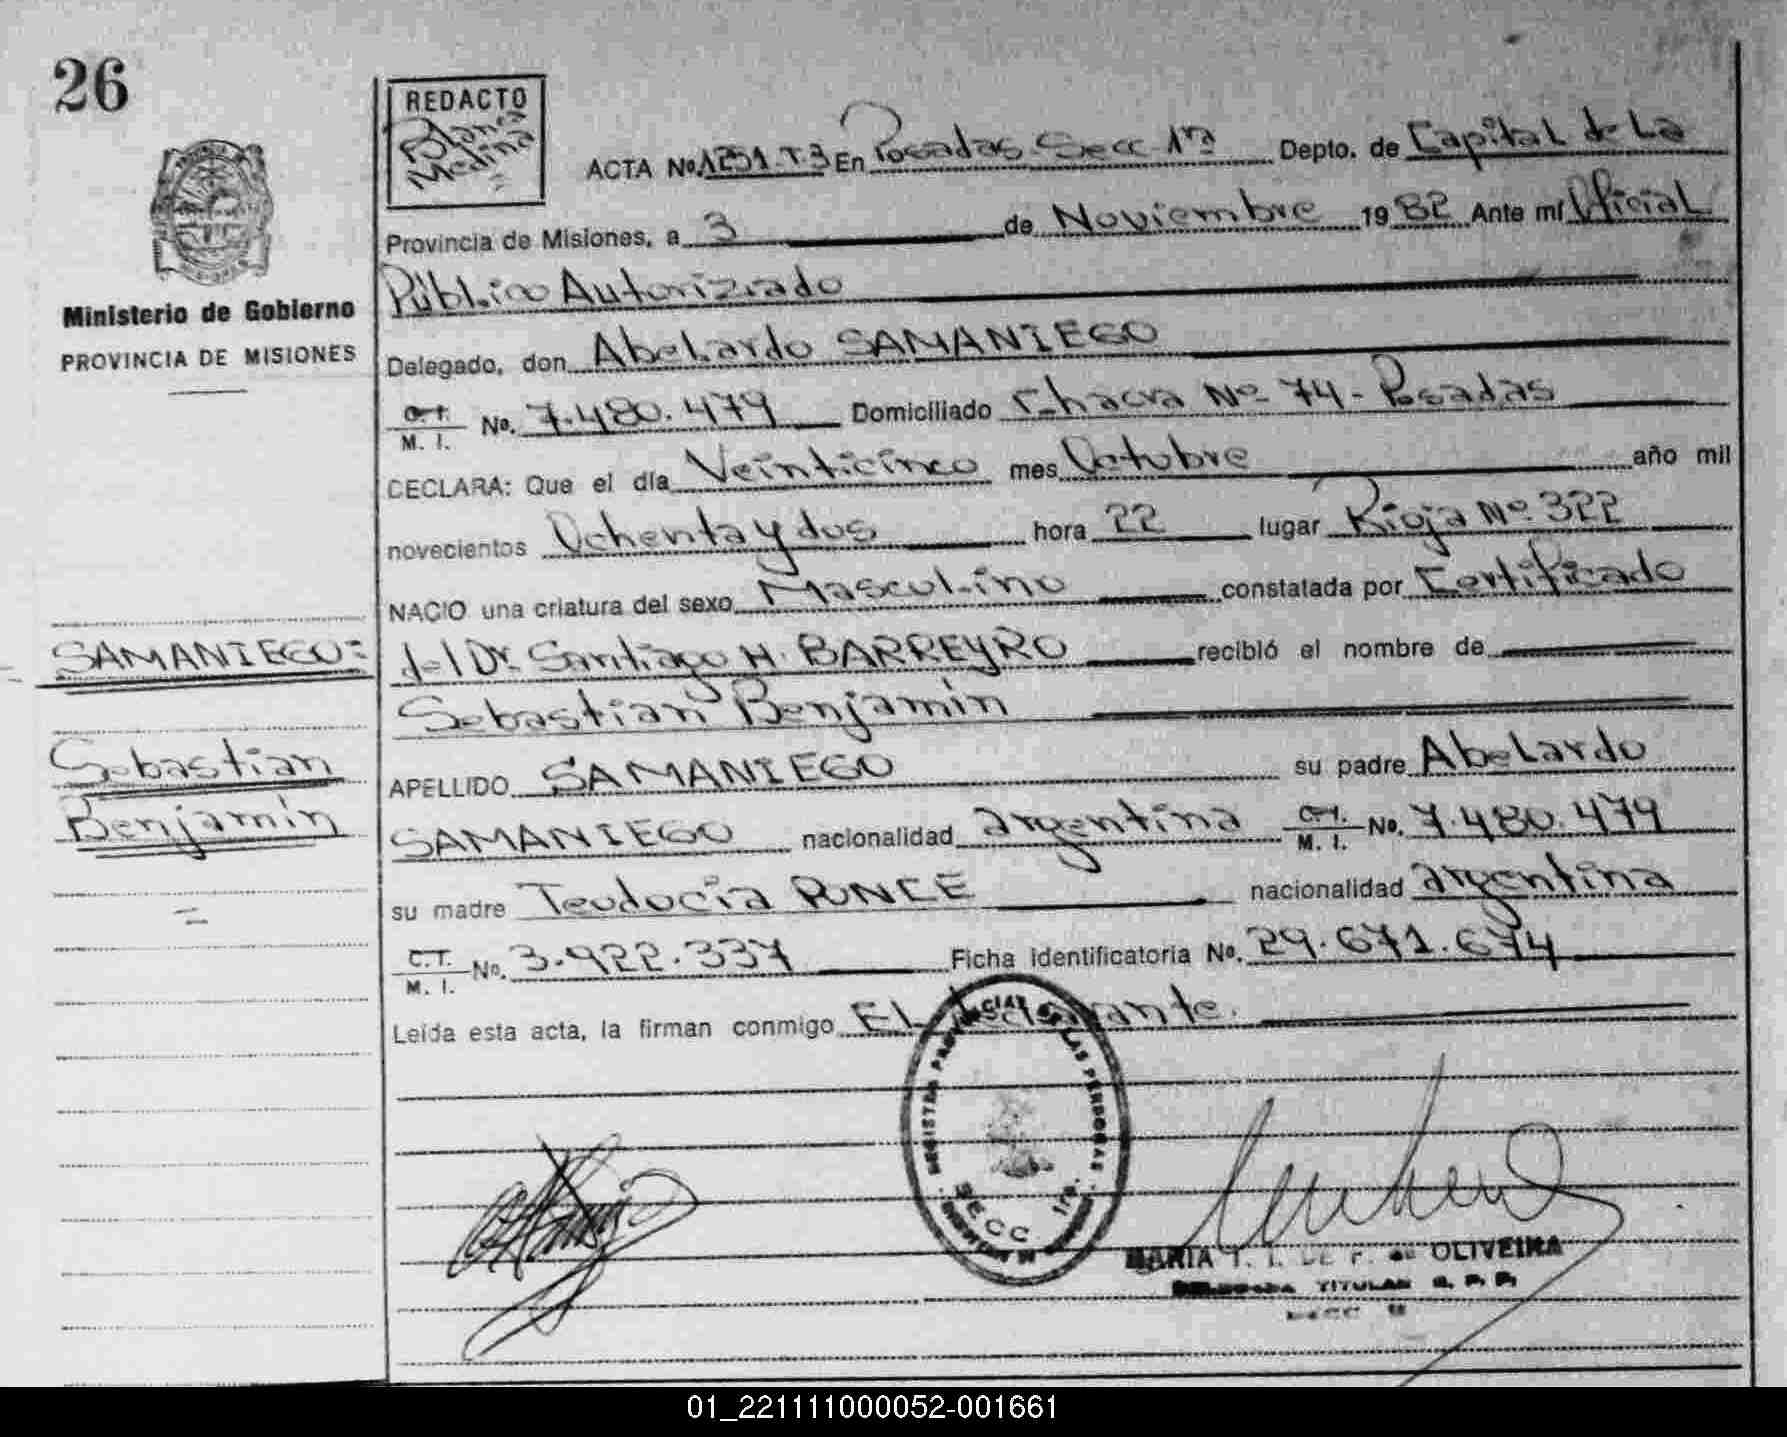 26
REDACTO
Blanca
Medina
ACTA No. 1251.T.3 En Posadas Secc 1ra Depto. de Capital de La
Provincia de Misiones, a 3 de Noviembre 1982 Ante mí Oficial
Público Autorizado
Ministerio de Gobierno
PROVINCIA DE MISIONES
Delegado, don Abelardo SAMANIEGO
M. I. No. 7.480.479 Domiciliado Chacra Nº 74 - Posadas
DECLARA: Que el día Veinticinco mes Octubre año mil
novecientos Ochenta y dos hora 22 lugar Rioja Nº 322
NACIO una criatura del sexo Masculino constatada por Certificado
SAMANIEGO=
del Dr. Santiago H. BARREYRO recibió el nombre de
Sebastian Benjamin
Sebastian
Benjamin
APELLIDO SAMANIEGO su padre Abelardo
SAMANIEGO nacionalidad argentina M. I. No. 7.480.479
su madre Teodocia PONCE nacionalidad argentina
C.I. M. I. No. 3.922.337 Ficha identificatoria No. 29.671.674
Leída esta acta, la firman conmigo El declarante.
REGISTRO PROVINCIAL DE LAS PERSONAS
SECC 1ra.
MARIA T. I. DE F. de OLIVEIRA
DELEGADA TITULAR R. P. P.
SECC
01_221111000052-001661